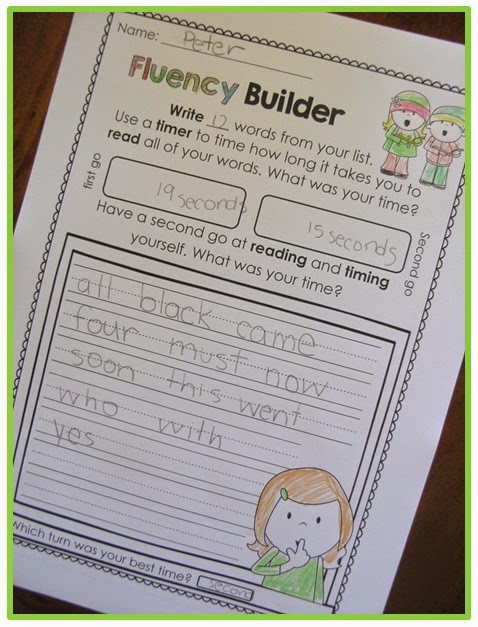 Name: Peter
Fluency Builder
Write 12 words from your list.
Use a timer to time how long it takes you to
read all of your words. What was your time?
first go
19 seconds
15 seconds
Second go
Have a second go at reading and timing
yourself. What was your time?
all black came
four must now
soon this went
who with
yes
Which turn was your best time? second